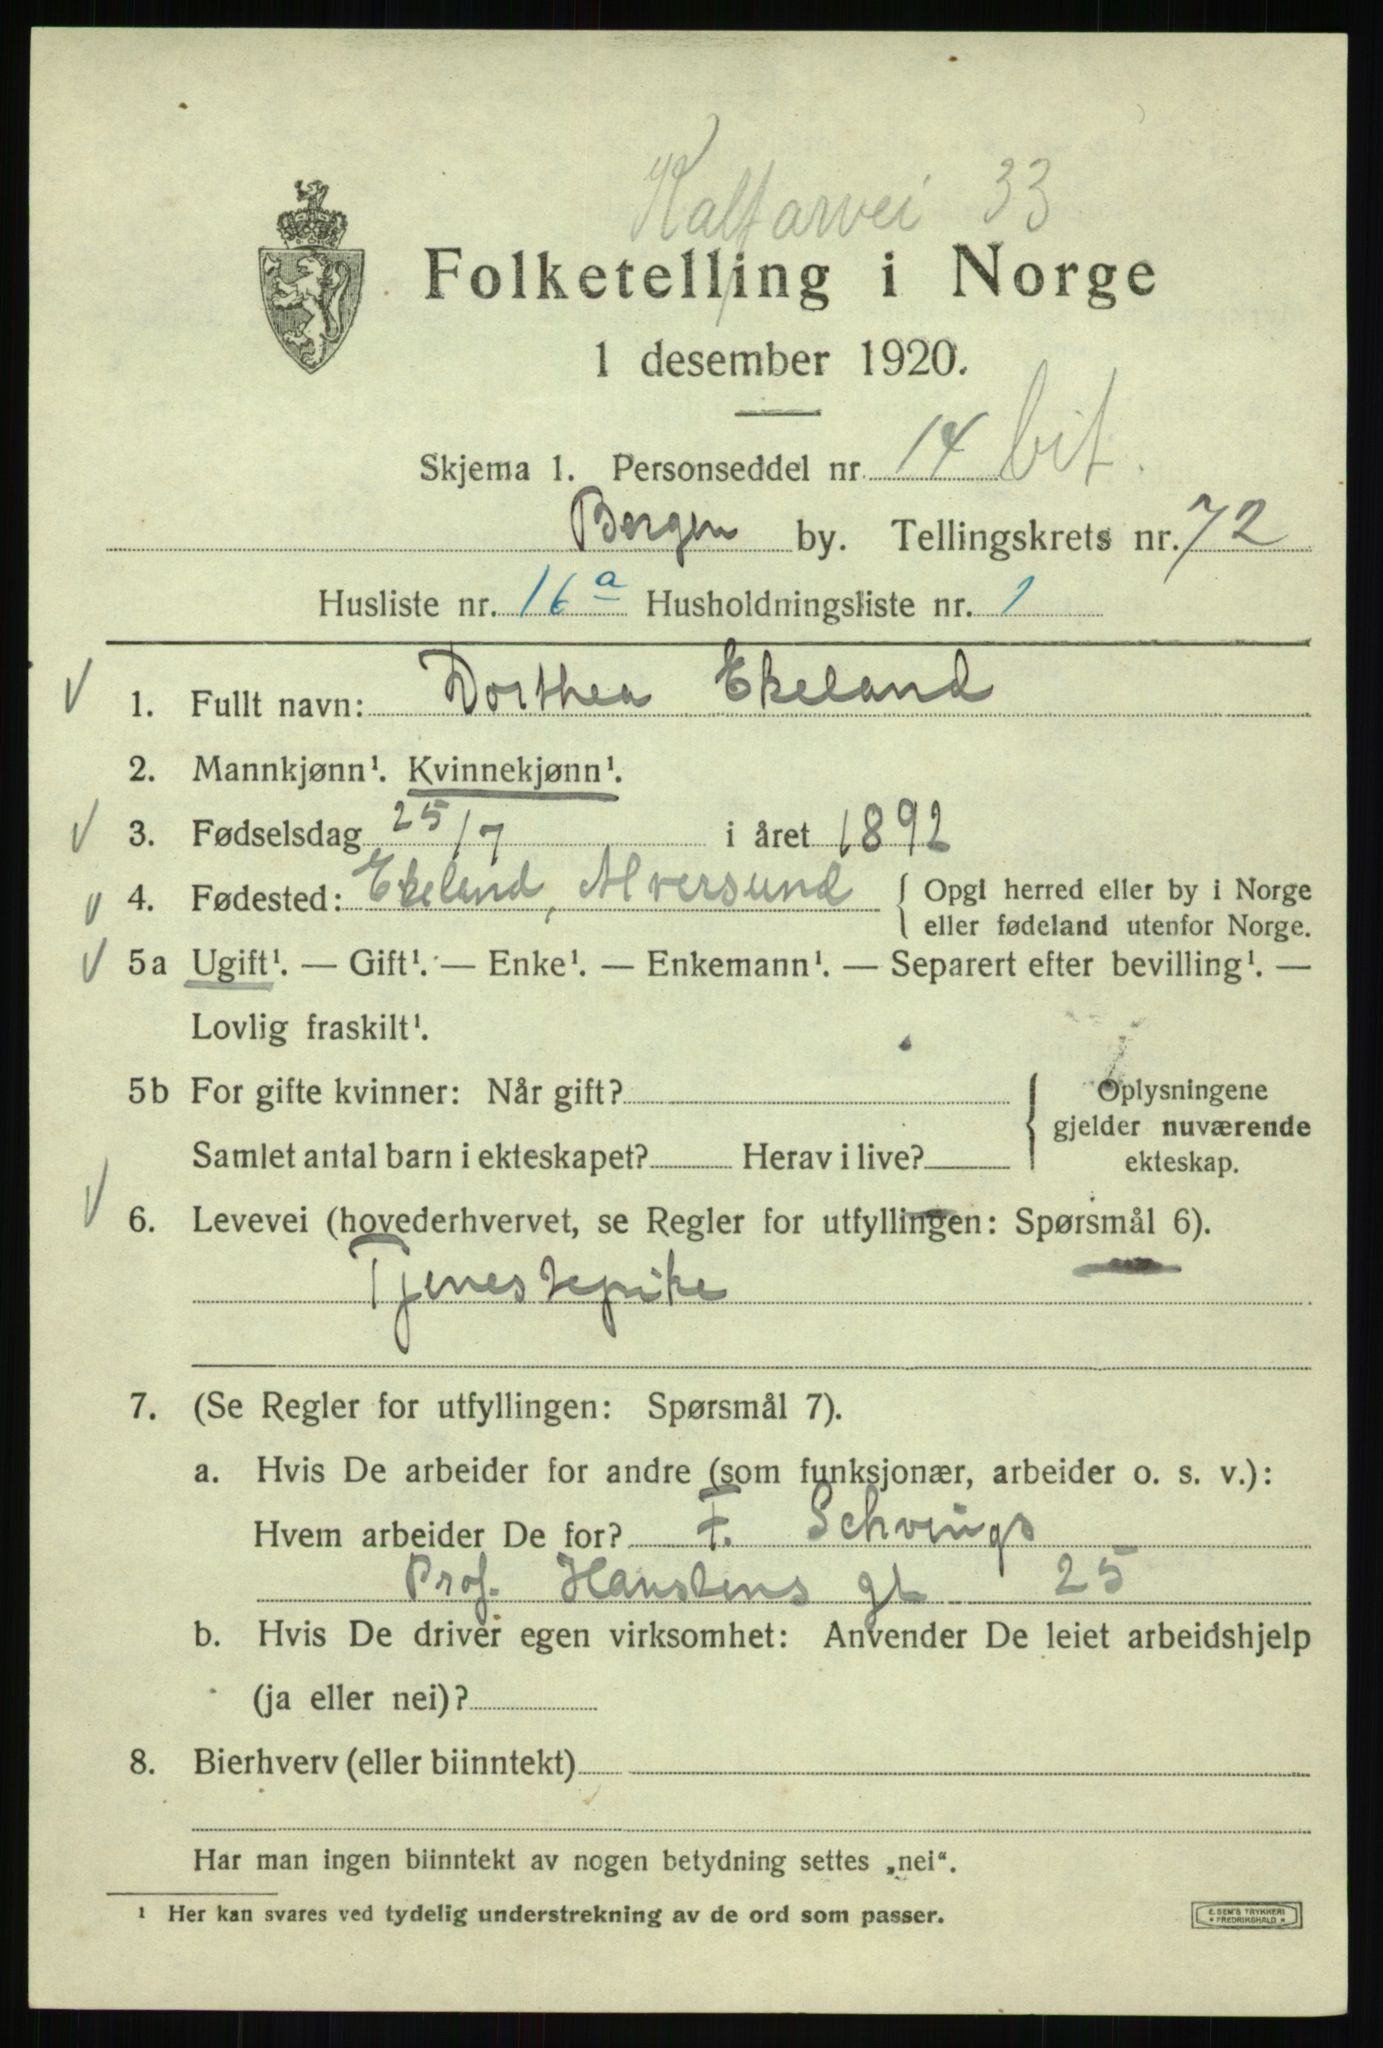 Kalfarvei 33
Folketelling i Norge
1 desember 1920.
Skjema 1. Personseddel nr. 14 bit.
Bergen by. Tellingskrets nr. 72
Husliste nr. 16a Husholdningsliste nr. 1
1. Fullt navn: Dorthea Ekeland
2. Mannkjønn¹. Kvinnekjønn¹.
3. Fødselsdag 25/7 i året 1892
4. Fødested: Ekeland, Alversund { Opgi herred eller by i Norge
eller fødeland utenfor Norge.
5a Ugift¹. — Gift¹. — Enke¹. — Enkemann¹. — Separert efter bevilling¹. —
Lovlig fraskilt¹.
5b For gifte kvinner: Når gift? { Oplysningene
gjelder nuværende
Samlet antal barn i ekteskapet? Herav i live? ekteskap.
6. Levevei (hovederhvervet, se Regler for utfyllingen: Spørsmål 6).
Tjenestepike
7. (Se Regler for utfyllingen: Spørsmål 7).
a. Hvis De arbeider for andre (som funksjonær, arbeider o. s. v.):
Hvem arbeider De for? F. Schvings
Prof. Hansteens gt 25
b. Hvis De driver egen virksomhet: Anvender De leiet arbeidshjelp
(ja eller nei)?
8. Bierhverv (eller biinntekt)
Har man ingen biinntekt av nogen betydning settes „nei“.
¹ Her kan svares ved tydelig understrekning av de ord som passer.
E. SEM'S TRYKKERI
* FREDRIKSHALD *